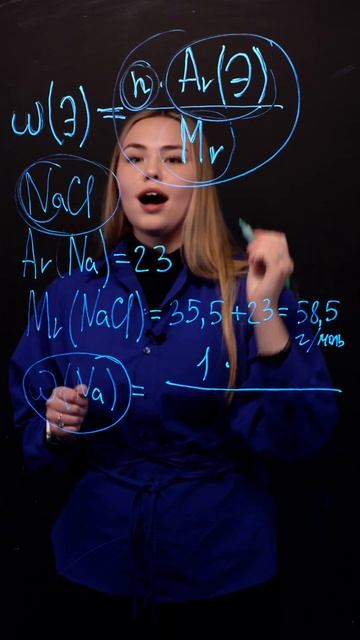 ω(Э) = n · Ar(Э) / Mr
NaCl
Ar(Na) = 23
Mr(NaCl) = 35,5 + 23 = 58,5
г/моль
ω(Na) = 1 ·